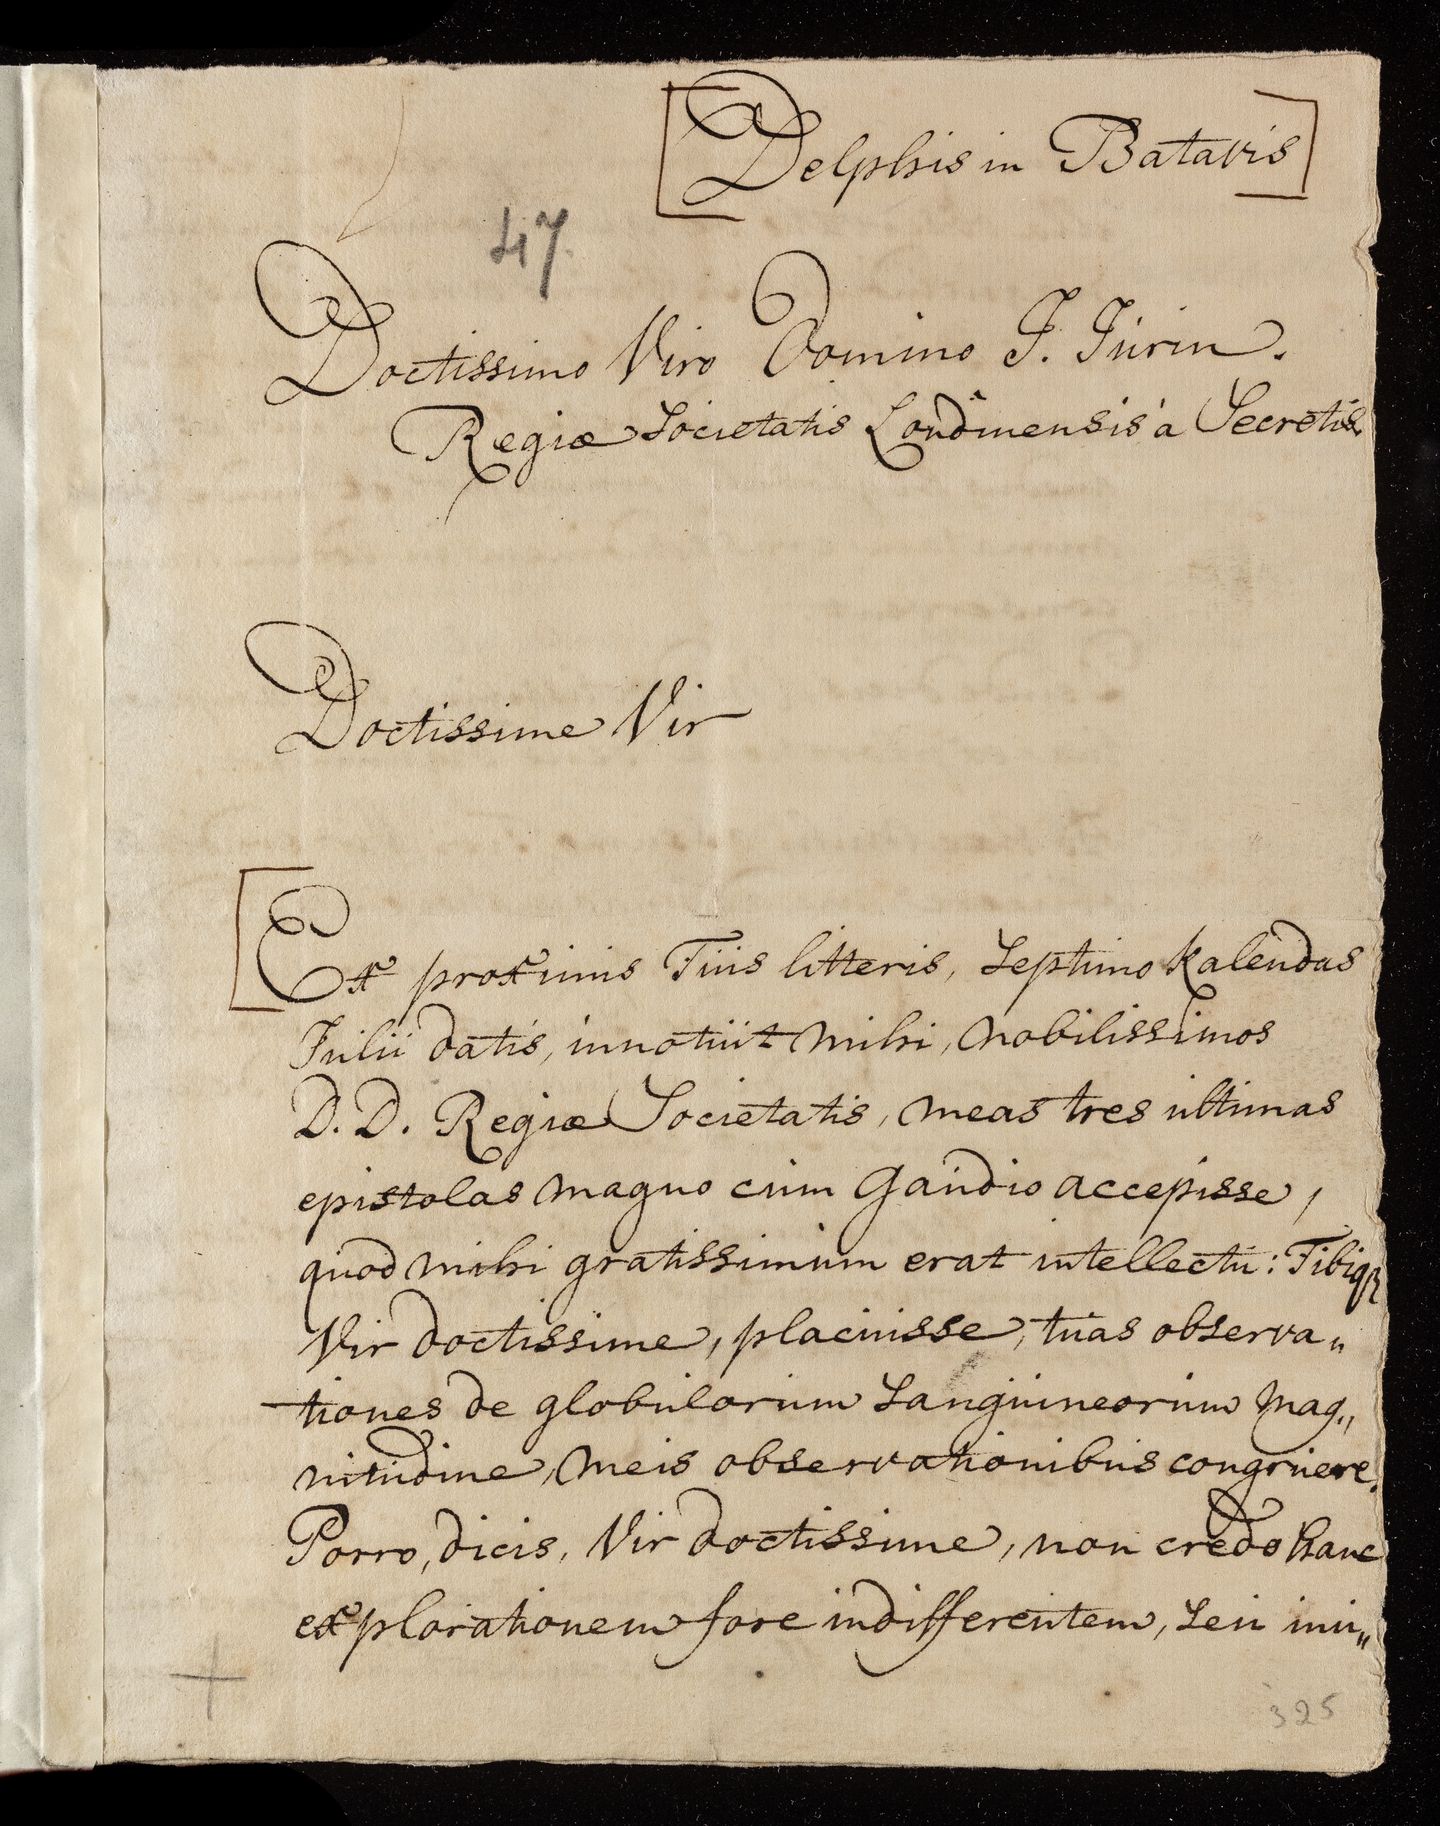 [Delphis in Batavis]
47.
Doctissimo Viro Domino J. Jurin.
Regiæ Societatis Londinensis a Secretis.
Doctissime Vir
[Ex proximis Tuis litteris, Septimo Kalendas
Julii datis, innotuit mihi, nobilissimos
D. D. Regiæ Societatis, meas tres ultimas
epistolas magno cum gaudio accepisse,
quod mihi gratissimum erat intellectu: Tibiqꝫ
Vir doctissime, placuisse, tuas observa„
tiones de globulorum sanguineorum mag„
nitudine, meis observationibus congruere.
Porro, dicis, Vir doctissime, non credo hanc
explorationem fore indifferentem, seu inu„
325